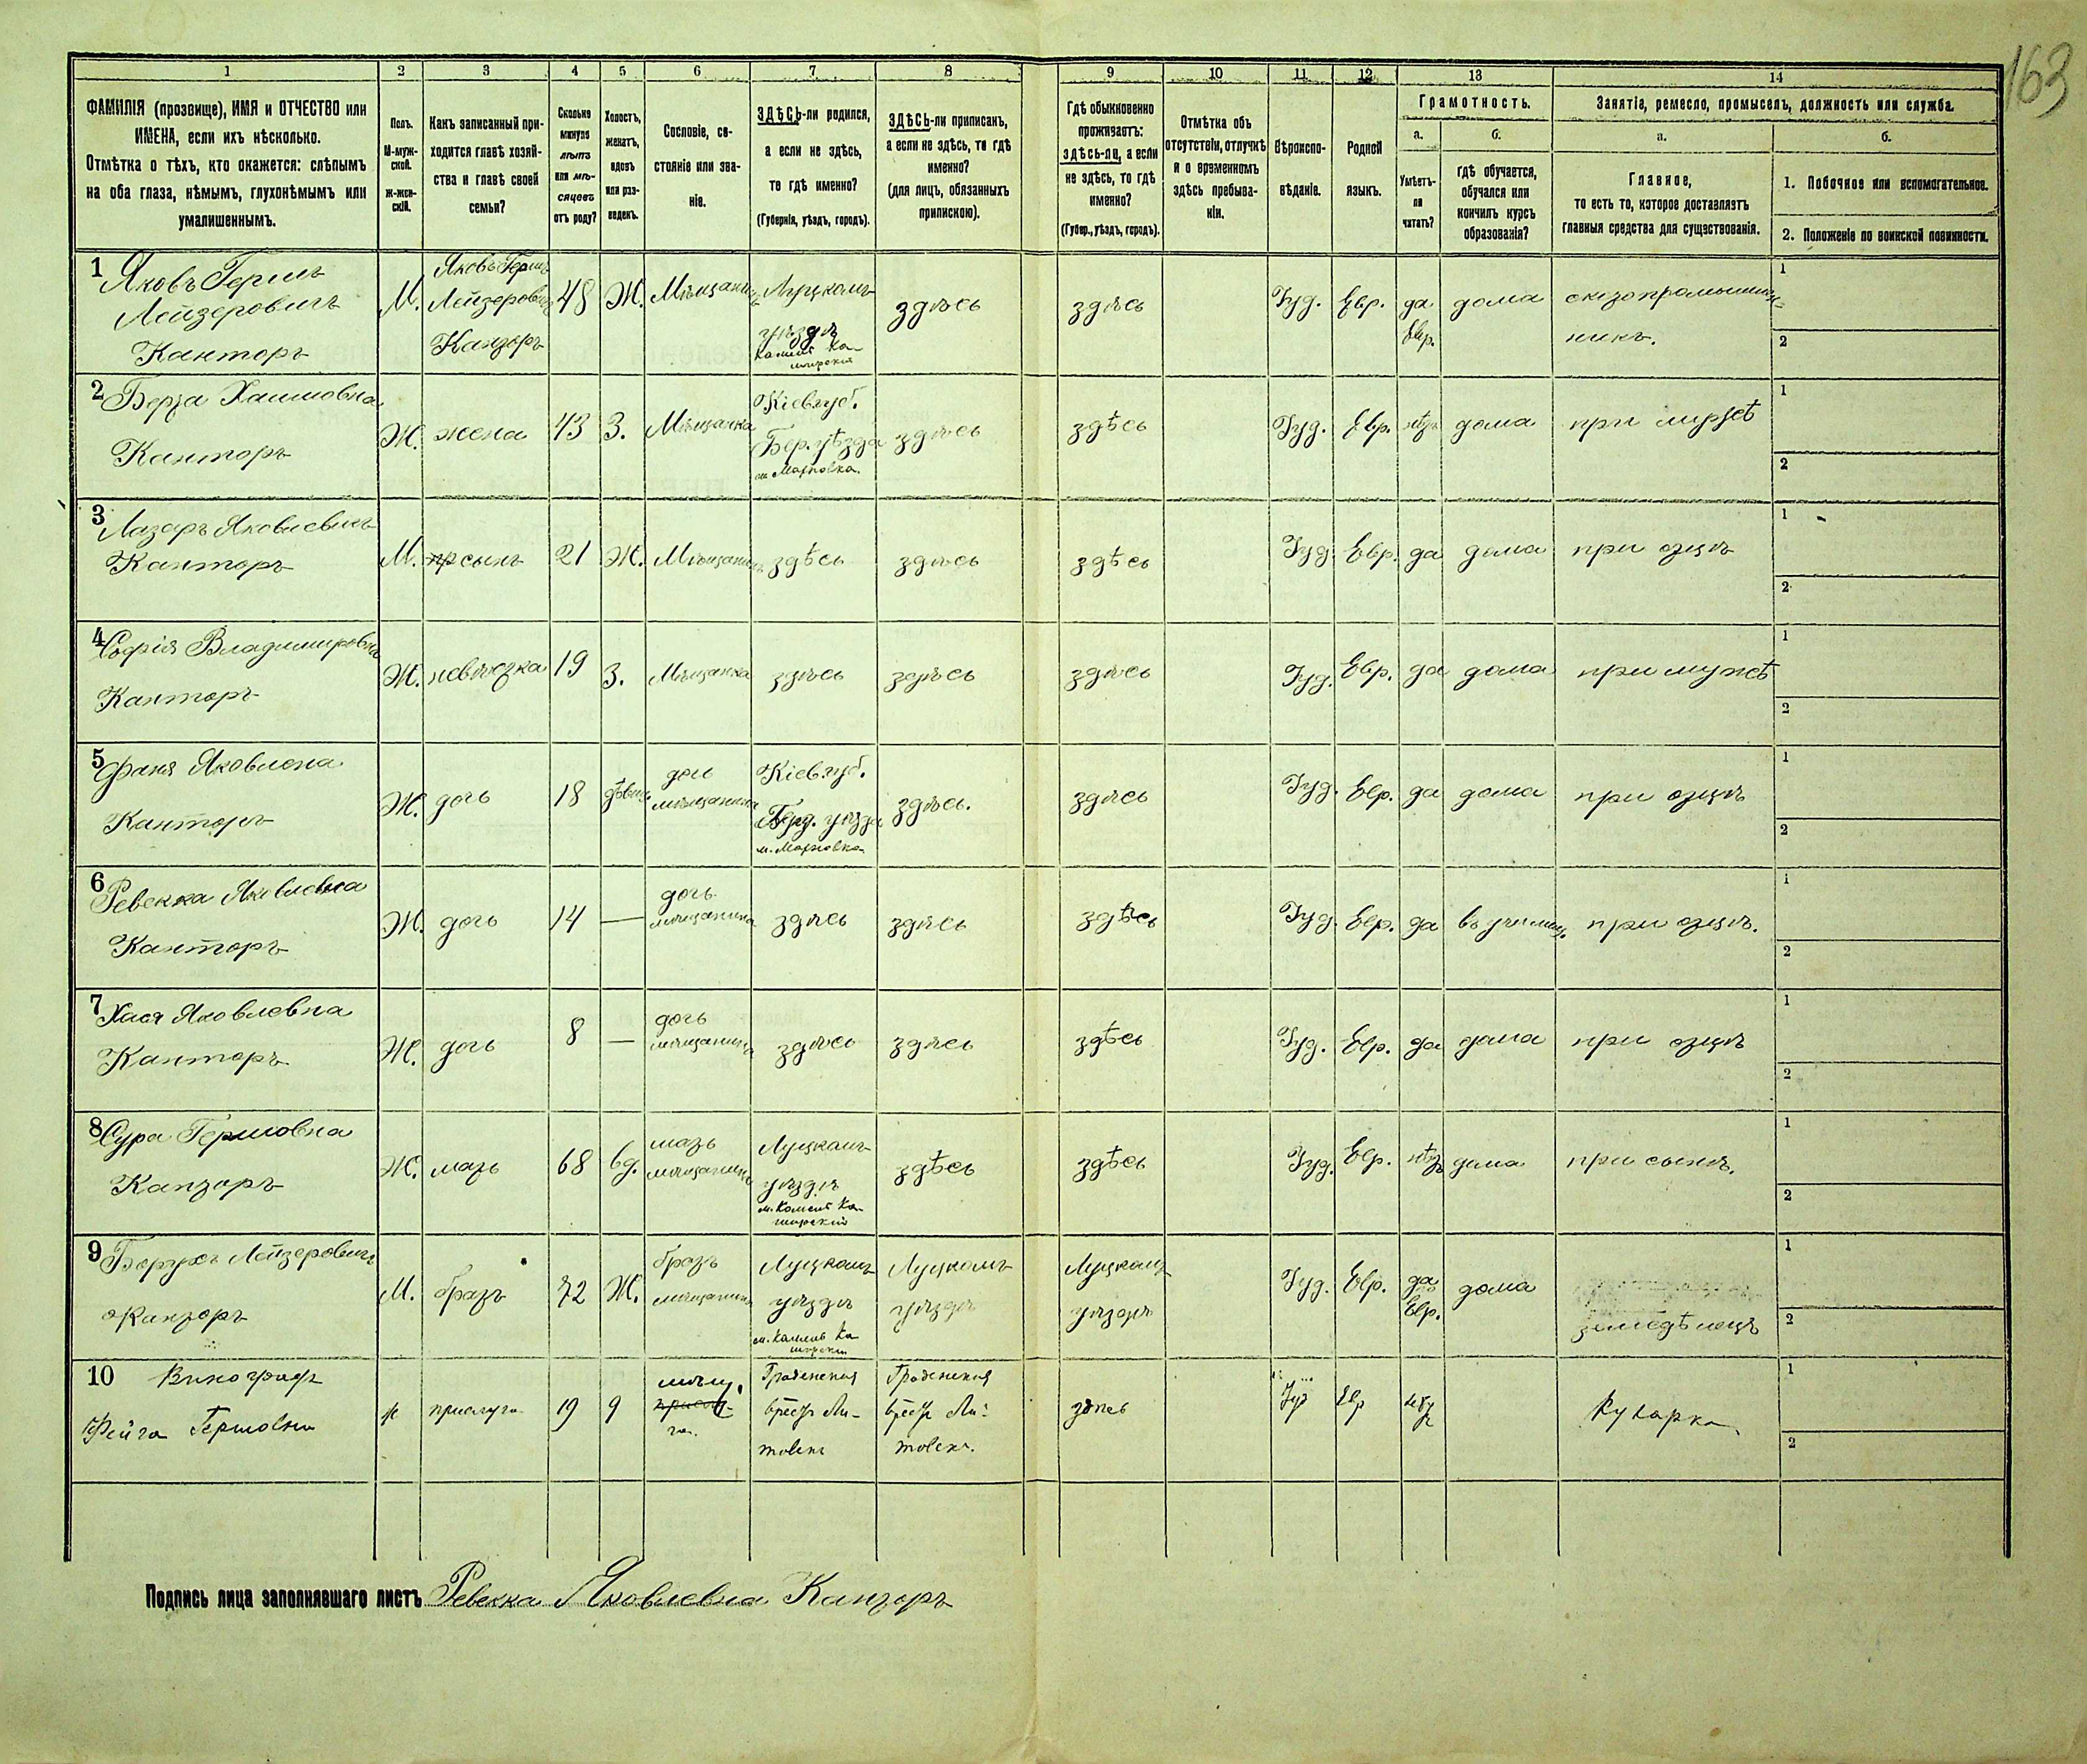 163
1 2 3 4 5 6 7 8 9 10 11 12 13 14
ФАМИЛІЯ (прозвище), ИМЯ и ОТЧЕСТВО или
ИМЕНА, если ихъ нѣсколько.
Отмѣтка о тѣхъ, кто окажется: слѣпымъ
на оба глаза, нѣмымъ, глухонѣмымъ или
умалишеннымъ.
Полъ.
М-муж-
ской.
Ж-жен-
скій.
Какъ записанный при-
ходится главѣ хозяй-
ства и главѣ своей
семьи?
Сколько
минуло
лѣтъ
или мѣ-
сяцевъ
отъ роду?
Холостъ,
женатъ,
вдовъ
или раз-
веденъ.
Сословіе, со-
стояніе или зва-
ніе.
ЗДѢСЬ-ли родился,
а если не здѣсь,
то гдѣ именно?
(Губернія, уѣздъ, городъ).
ЗДѢСЬ-ли приписанъ,
а если не здѣсь, то гдѣ
именно?
(для лицъ, обязанныхъ
припискою).
Гдѣ обыкновенно
проживаетъ:
здѣсь-ли, а если
не здѣсь, то гдѣ
именно?
(Губер., уѣздъ, городъ).
Отмѣтка объ
отсутствіи, отлучкѣ
и о временномъ
здѣсь пребыва-
ніи.
Вѣроиспо-
вѣданіе.
Родной
языкъ.
Грамотность.
а.
Умѣетъ-
ли
читать?
б.
гдѣ обучается,
обучался или
кончилъ курсъ
образованія?
Занятія, ремесло, промыселъ, должность или служба.
а.
Главное,
то есть то, которое доставляетъ
главныя средства для существованія.
б.
1. Побочное или вспомогательное.
2. Положеніе по воинской повинности.
1 Яковъ Гершъ
Лейзеровичъ
Канторъ
М.
Яковъ Гершъ
Лейзеровичъ
Канторъ
48
Ж.
Мѣщанинъ
Луцкомъ
уѣздѣ
Камень Ка-
ширскій
здѣсь
здѣсь
Іуд.
Евр.
да
Евр.
дома
никъ.
1
2
2 Берта Хаимовна
Канторъ
Ж.
жена
43
З.
Мѣщанка
Кіев. губ.
Бер. уѣзда
здѣсь
здѣсь
Іуд.
Евр.
нѣтъ
дома
при мужѣ
1
2
3 Лазарь Яковлевичъ
Канторъ
М.
сынъ
21
Ж.
Мѣщанинъ
здѣсь
здѣсь
здѣсь
Іуд.
Евр.
да
дома
при отцѣ
1
2
4 Софія Владимировна
Канторъ
Ж.
невѣстка
19
З.
Мѣщанка
здѣсь
здѣсь
здѣсь
Іуд.
Евр.
да
дома
при мужѣ
1
2
5 Фаня Яковлена
Канторъ
Ж.
дочь
18
дѣвиц.
дочь
мѣщанина
Кіев. губ.
Берд. уѣзда
здѣсь.
здѣсь
Іуд.
Евр.
да
дома
при отцѣ
1
2
6 Ревекка Яковлевна
Канторъ
Ж.
дочь
14
—
дочь
мѣщанина
здѣсь
здѣсь
здѣсь
Іуд.
Евр.
да
въ училищ.
при отцѣ.
1
2
7 Хася Яковлевна
Канторъ
Ж.
дочь
8
—
дочь
мѣщанина
здѣсь
здѣсь
здѣсь
Іуд.
Евр.
да
дома
при отцѣ
1
2
8 Сура Гершовна
Канторъ
Ж.
мать
68
вд.
мать
мѣщанина
Луцкомъ
уѣздѣ
м. Камень Ка-
ширскій
здѣсь
здѣсь
Іуд.
Евр.
нѣтъ
дома
при сынѣ.
1
2
9 Борухъ Лейзеровичъ
Канторъ
М.
братъ
72
Ж.
братъ
мѣщанина
Луцкомъ
уѣздѣ
м. Камень Ка-
ширскій
Луцкомъ
уѣздѣ
Луцкомъ
уѣздѣ
Іуд.
Евр.
да
Евр.
дома
земледѣлецъ
1
2
10 Виноградъ
Фейга Гершовна
ж
прислуга
19
9
мѣщ.
Гродненская
Брестъ Ли-
товскъ
Гродненская
Брестъ Ли-
товскъ.
здѣсь
Іуд
Евр
нѣтъ
Кухарка
1
2
Подпись лица заполнявшаго листъ Ревекка Яковлевна Канторъ